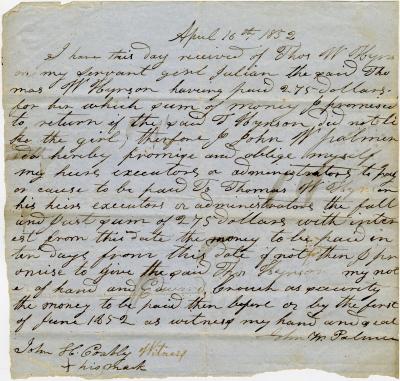 April 16th 1852
I have this day received of Thos W Hynson
on my servant girl Julian the said Tho
mas W Hynson having paid 275 dollars
for her which sum of money I promised
to return if the said T Hynson did not li
ke the girl, therefore I John W Palmer
do hereby promise and oblige myself
my heirs executors or administrators to pay
or cause to be paid to Thomas W Hynson
his heirs executors or administrators the full
and Just sum of 275 dollars with inter
est from this date the money to be paid in
ten days from this date if not then I pro
mise to give the said Thos Hynson my not
e of hand and Edward Crouch as security
the money to be paid then before or by the first
of June 1852 as witness my hand and seal
Jno W Palmer
John H. Witness
+ his mark